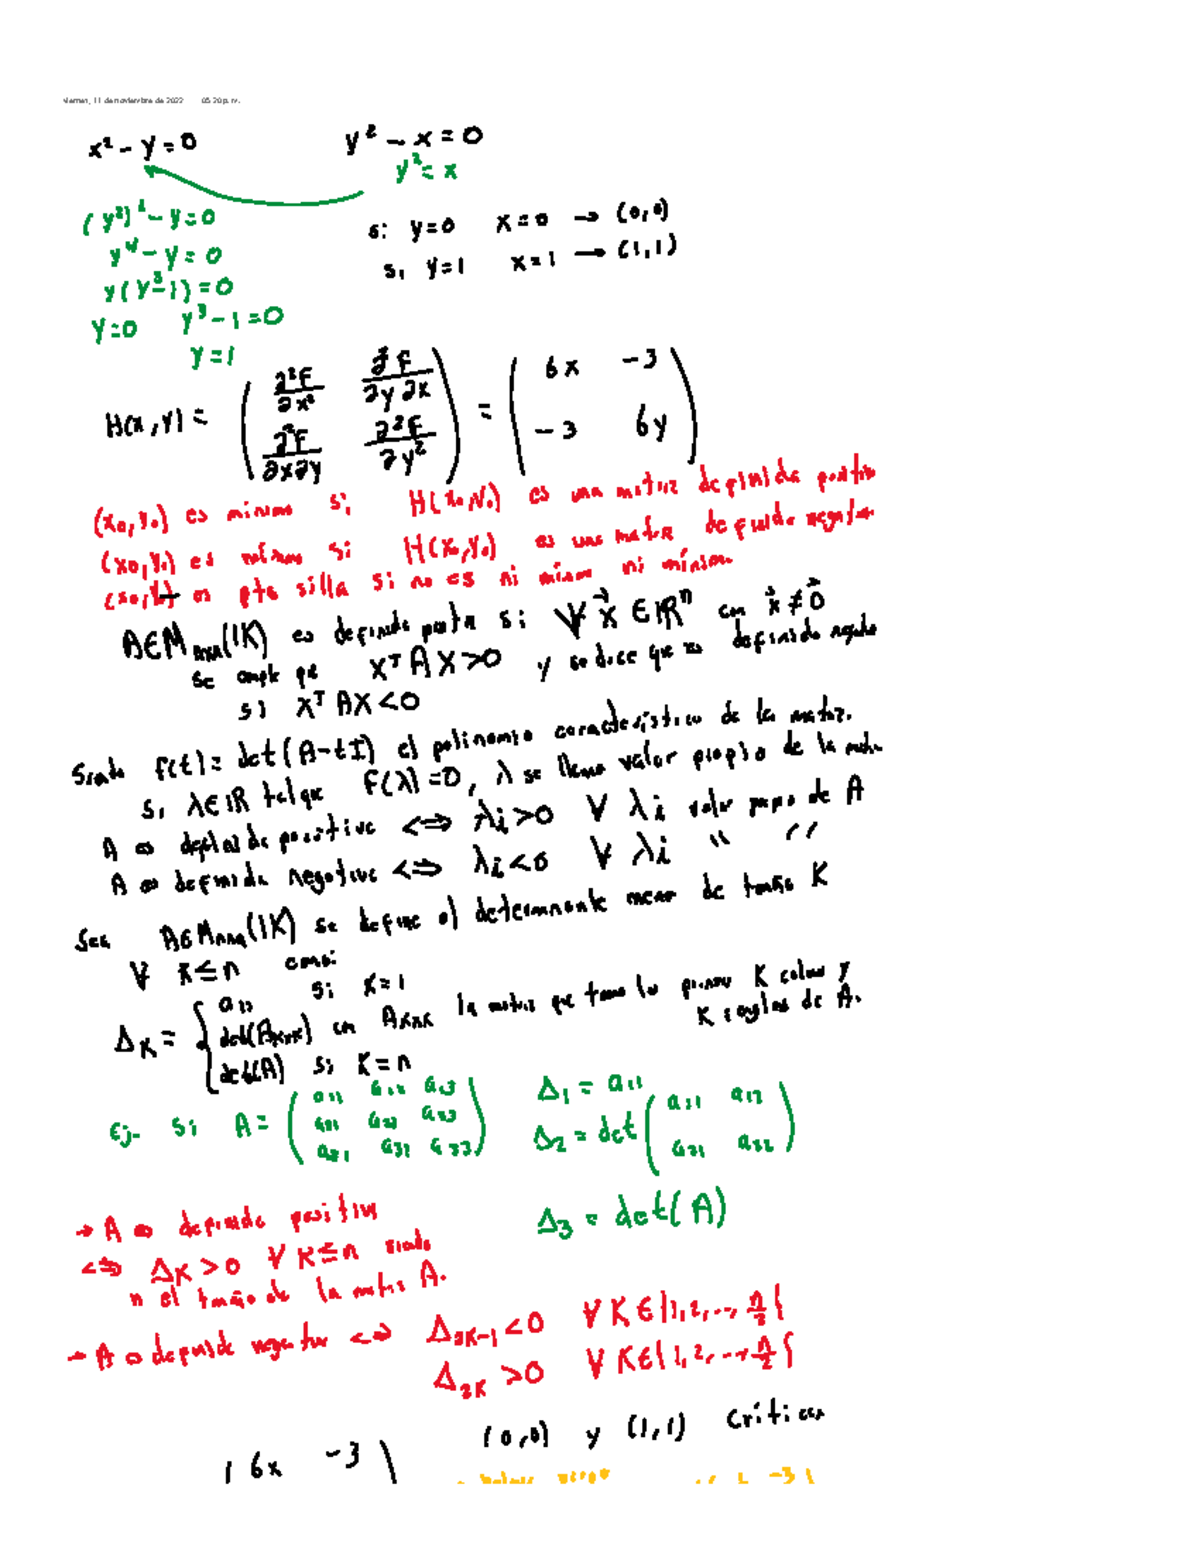 viernes, 11 de noviembre de 2022 05:20 p. m.
x² - y = 0 y² - x = 0
y² = x
(y²)² - y = 0
si y=0 x=0 → (0,0)
y⁴ - y = 0
si y=1 x=1 → (1,1)
y(y³-1) = 0
y=0 y³-1=0
y=1
H(x,y) = ( ∂²F/∂x² ∂²F/∂y∂x ; ∂²F/∂x∂y ∂²F/∂y² ) = ( 6x -3 ; -3 6y )
(x₀,y₀) es mínimo si H(x₀,y₀) es una matriz definida positiva
(x₀,y₀) es si H(x₀,y₀) es una matriz definida negativa
(x₀,y₀) es pto silla si no es ni ni
A∈Mₙₓₙ(IK) es definida positiva si ∀ x⃗ ∈ IRⁿ con x⃗ ≠ 0⃗
se cumple que xᵀAx>0 y se dice que es definida negativa
si xᵀAx<0
Siendo f(t) = det(A-tI) el polinomio característico de la matriz.
Si λ∈IR tal que F(λ)=0, λ se llama valor propio de la matriz
A es definida positiva ⟺ λi>0 ∀ λi valor propio de A
A es definida negativa ⟺ λi<0 ∀ λi " "
Sea A∈Mₙₓₙ(IK) se define el determinante menor de tamaño K
∀ K≤n como:
Δ_K = { a₁₁ si K=1
det(A_KxK) con A_KxK la matriz que toma las primeras K colum y K renglones de A.
det(A) si K=n
Ej. Si A = ( a₁₁ a₁₂ a₁₃ ; a₂₁ a₂₂ a₂₃ ; a₃₁ a₃₂ a₃₃ ) Δ₁ = a₁₁
Δ₂ = det ( a₁₁ a₁₂ ; a₂₁ a₂₂ )
Δ₃ = det(A)
→ A es definida positiva
⟺ Δ_K > 0 ∀ K≤n siendo
n el tamaño de la matriz A.
→ A es definida negativa ⟺ Δ_2K-1 <0 ∀ K∈{1,2,..., n/2}
Δ_2K >0 ∀ K∈{1,2,..., n/2}
(0,0) y (1,1) críticos
( 6x -3 )